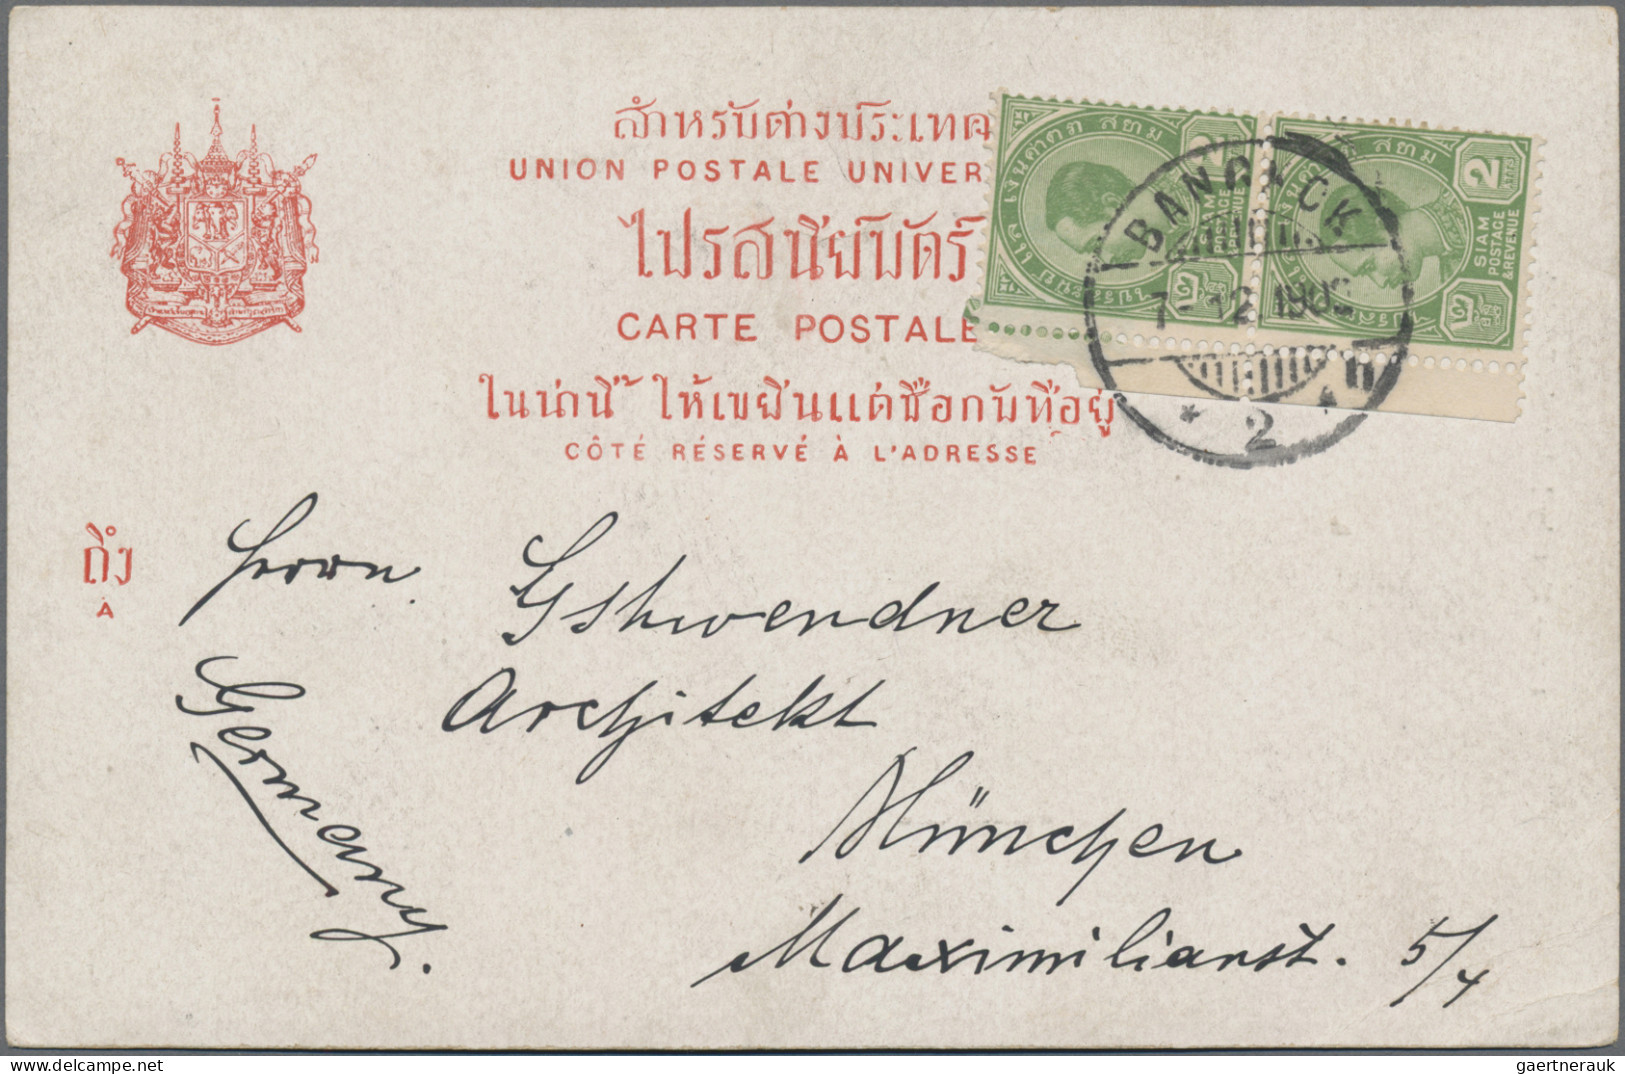 สำหรับต่างประเทศ
UNION POSTALE UNIVER
ไปรสนีย์บัตร์
CARTE POSTALE
ในน่านี้ ให้เขียนแต่ชื่อกับที่อยู่
CÔTÉ RÉSERVÉ À L'ADRESSE
สยาม
2
SIAM
POSTAGE
& REVENUE
สยาม
2
ATTS
SIAM
POSTAGE
& REVENUE
BANGKOK
7 12 190
2
ถึง
A
Herrn
Gshwendner
Architekt
München
Maximilianst. 5/4
Germany.
gaertnerauk